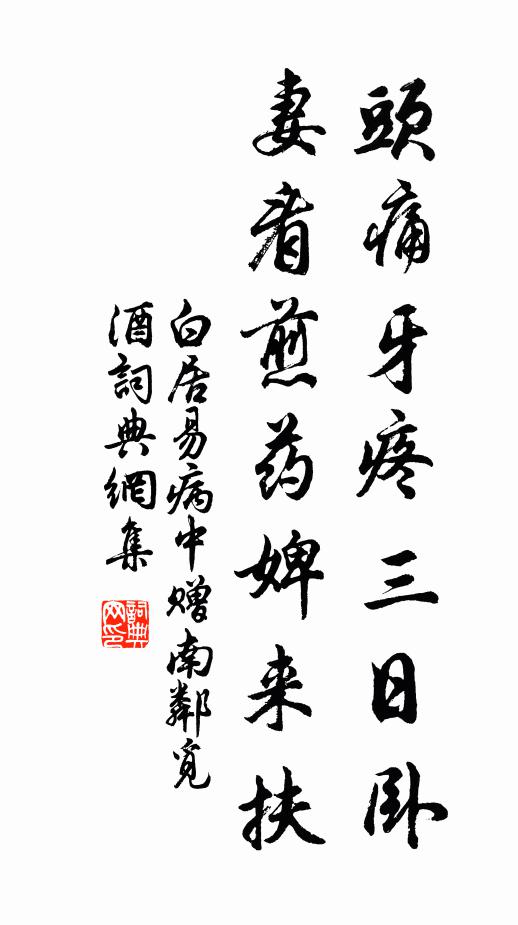 頭痛牙疼三日卧
妻看煎药婢来扶
白居易病中赠南鄰覓
酒詞典網集
詞典网印